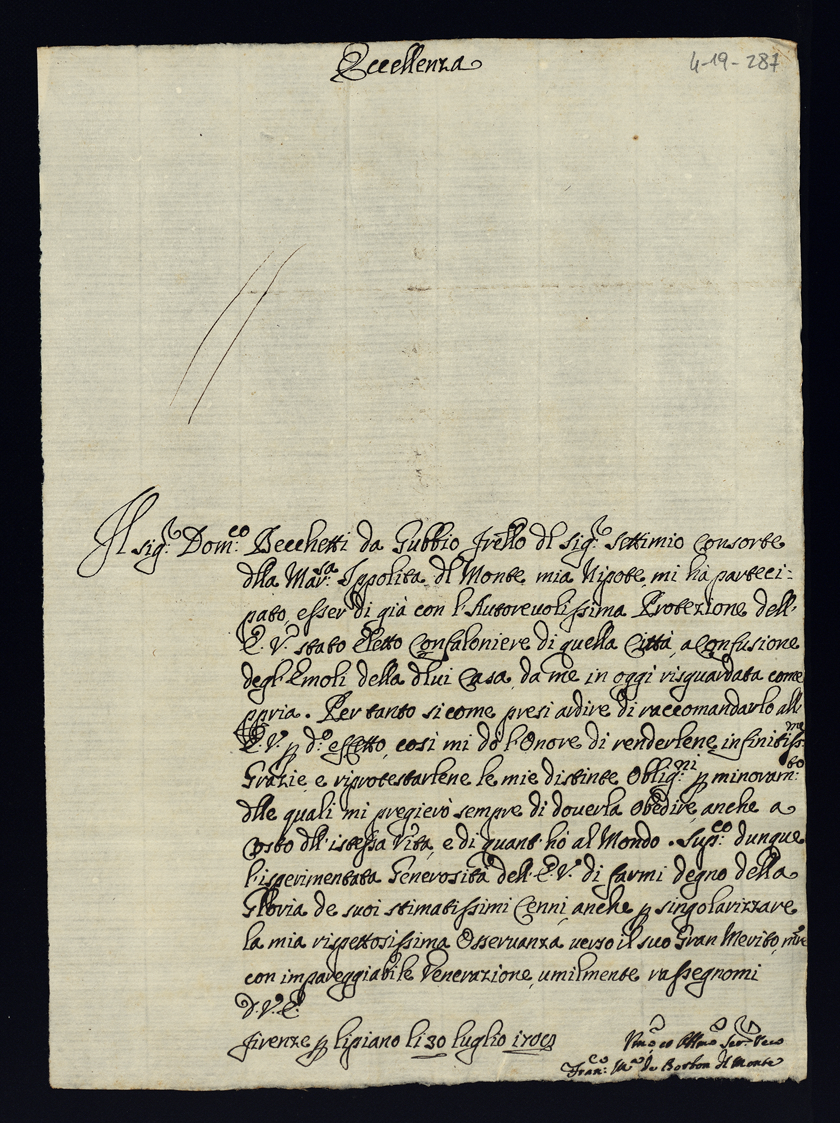 Eccellenza
4-19-287
Il sig.r Dom.co Becchetti da Gubbio frello dl sig.r settimio Consorte
dlla Mar.sa Ippolita dl Monte mia Nipote, mi hà parteci-
pato, esser di già con l'Autoreuolissima Protezione dell'
E.V. stato Eletto Confaloniere di quella Città, a Confusione
degl'Emoli della dlui Casa, da me in oggi risguardata come
ppria. Per tanto si come presi ardire di raccomandarlo all'
E.V. p d.o effetto, così mi dò l'Onore di renderlene infinitiss.me
Grazie, e riprotestarlene le mie distinte Oblig.ni p minoram.to
dlle quali mi pregierò sempre di douerla Obedire, anche a
Costo dll'istessa Vita, e di quant'hò al Mondo. Sup.co dunque
l'isperimentata Generosità dell'E.V. di farmi degno della
Gloria de suoi stimatissimi Cenni, anche p singolarizzare
la mia rispettosissima Osseruanza verso il suo Gran Merito, ntre
con impareggiabile Venerazione, umilmente rassegnomi
D.V.E.
Firenze p lipiano li 30 luglio
Fran.co M.a de Borbon dl Monte